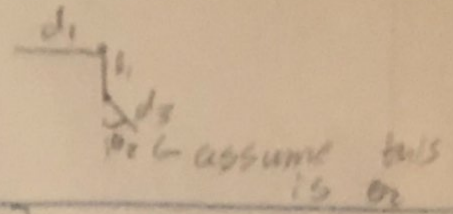 d₁
l₁
d₃
θ₂ ← assume this
is θ₂